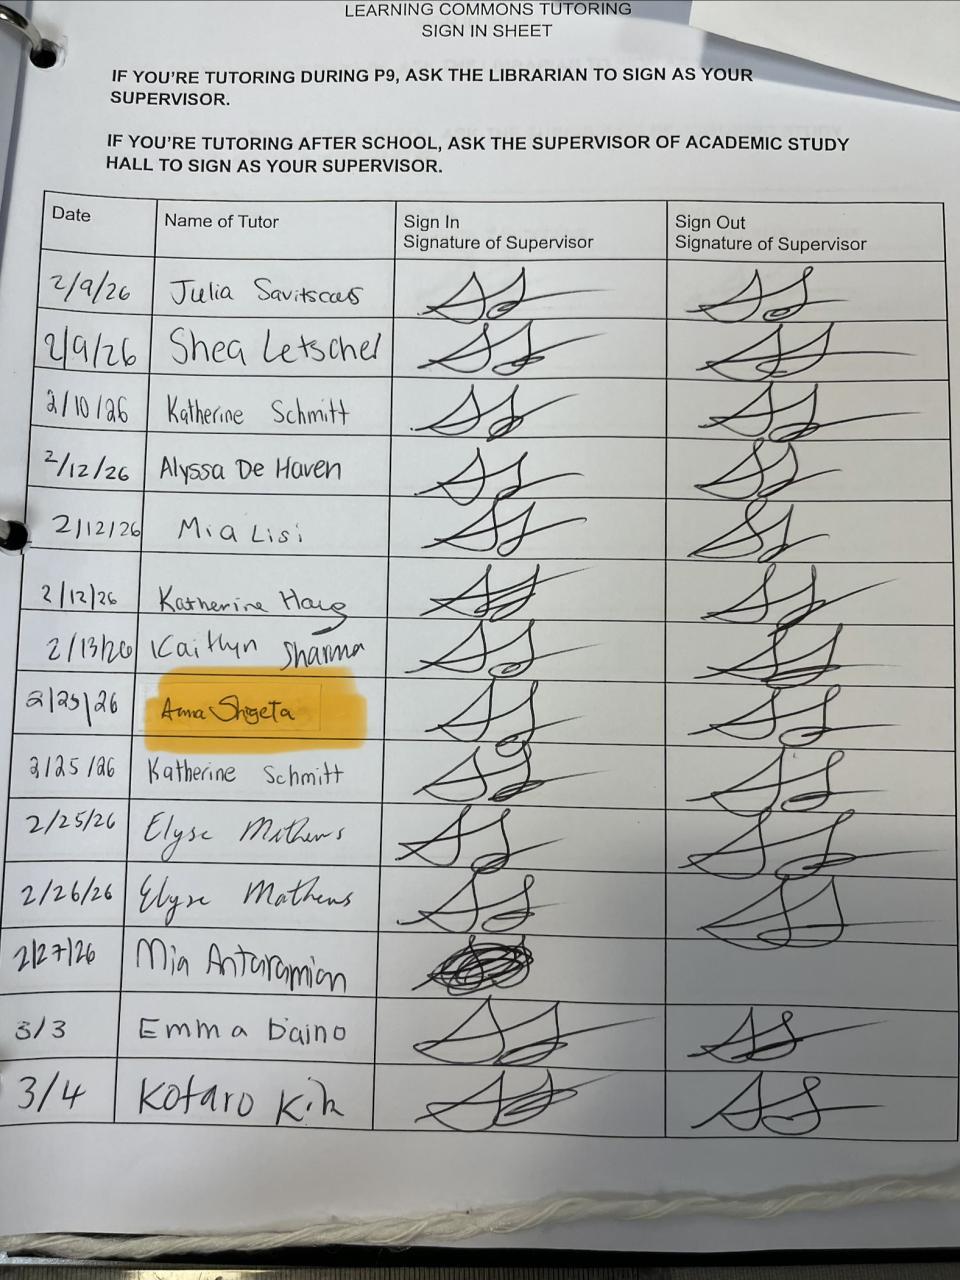 LEARNING COMMONS TUTORING
SIGN IN SHEET
IF YOU'RE TUTORING DURING P9, ASK THE LIBRARIAN TO SIGN AS YOUR
SUPERVISOR.
IF YOU'RE TUTORING AFTER SCHOOL, ASK THE SUPERVISOR OF ACADEMIC STUDY
HALL TO SIGN AS YOUR SUPERVISOR.
Date Name of Tutor Sign In Signature of Supervisor Sign Out Signature of Supervisor
2/9/26 Julia
2/9/26 Shea Letschel
2/10/26 Katherine Schmitt
2/12/26 Alyssa De Haven
2/12/26 Mia Lisi
2/12/26 Katherine Haug
2/13/26 Kaitlyn Sharma
2/25/26 Anna Shigeta
2/25/26 Katherine Schmitt
2/25/26 Elyse Mathews
2/26/26 Elyse Mathews
2/27/26 Mia Antaramian
3/3 Emma Daino
3/4 Kotaro